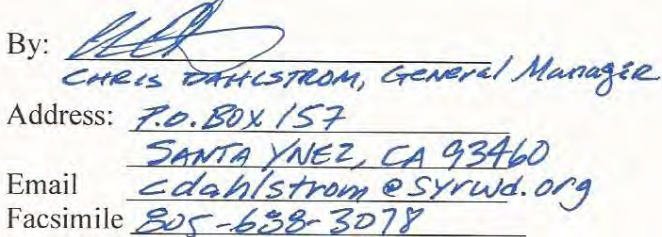 By:
CHRIS DAHLSTROM, General Manager
Address: P.O. BOX 157
SANTA YNEZ, CA 93460
Email cdahlstrom@syrwd.org
Facsimile 805-688-3078